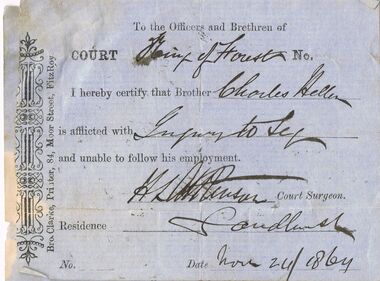 To the Officers and Brethren of
COURT King of Forest No.
I hereby certify that Brother Charles Heller
is afflicted with Injury to Leg
and unable to follow his employment.
Court Surgeon.
Residence Sandhurst
No. Date Nov 24/1864
Bro. Clarke, Printer, 84, Moor Street, FitzRoy